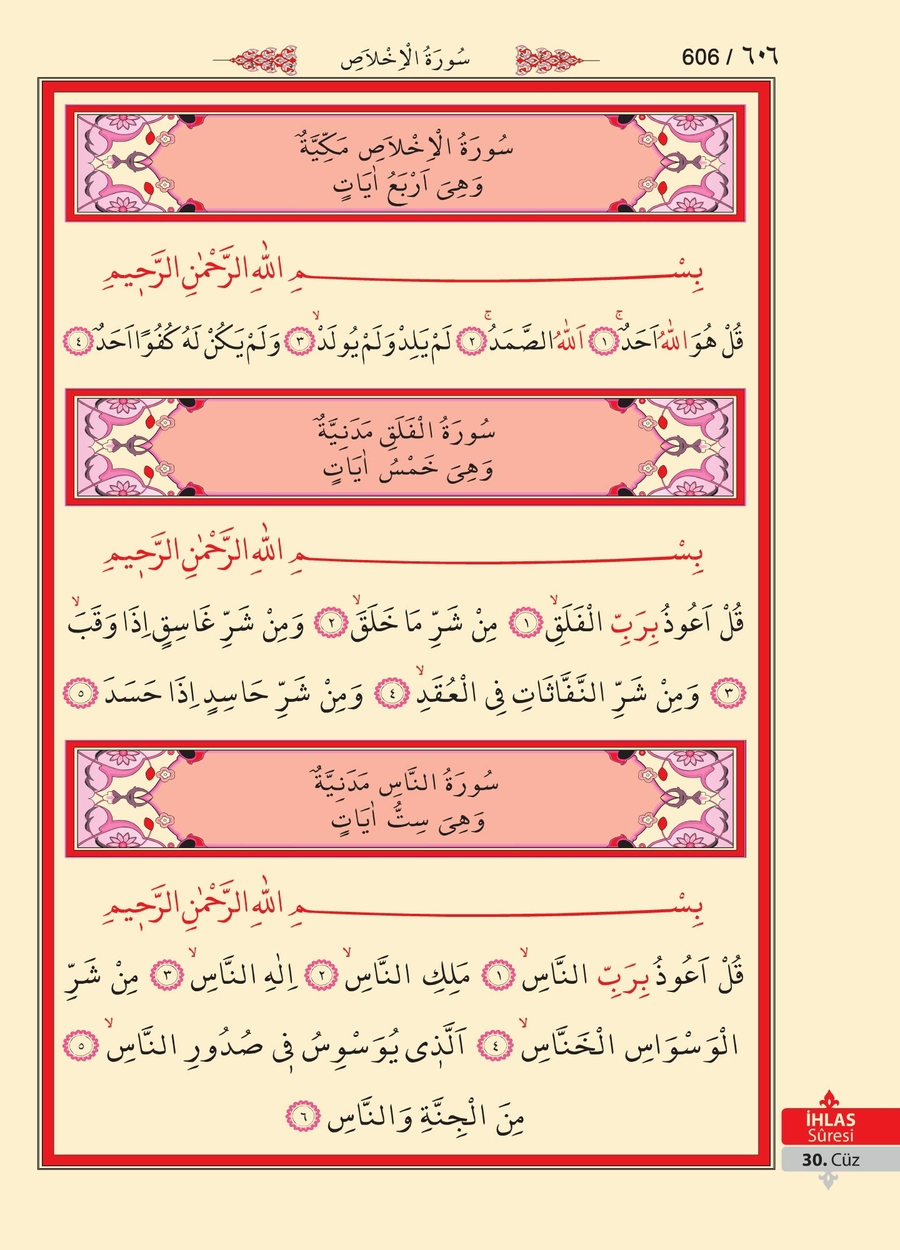 سُورَةُ الْاِخْلَاصِ
606 / ٦٠٦
سُورَةُ الْاِخْلَاصِ مَكِّيَّةٌ
وَهِىَ اَرْبَعُ اٰيَاتٍ
بِسْمِ اللّٰهِ الرَّحْمٰنِ الرَّح۪يمِ
قُلْ هُوَ اللّٰهُ اَحَدٌۚ ﴿١﴾ اَللّٰهُ الصَّمَدُۚ ﴿٢﴾ لَمْ يَلِدْ وَلَمْ يُولَدْۙ ﴿٣﴾ وَلَمْ يَكُنْ لَهُ كُفُوًا اَحَدٌ ﴿٤﴾
سُورَةُ الْفَلَقِ مَدَنِيَّةٌ
وَهِىَ خَمْسُ اٰيَاتٍ
بِسْمِ اللّٰهِ الرَّحْمٰنِ الرَّح۪يمِ
قُلْ اَعُوذُ بِرَبِّ الْفَلَقِۙ ﴿١﴾ مِنْ شَرِّ مَا خَلَقَۙ ﴿٢﴾ وَمِنْ شَرِّ غَاسِقٍ اِذَا وَقَبَۙ
﴿٣﴾ وَمِنْ شَرِّ النَّفَّاثَاتِ فِى الْعُقَدِۙ ﴿٤﴾ وَمِنْ شَرِّ حَاسِدٍ اِذَا حَسَدَ ﴿٥﴾
سُورَةُ النَّاسِ مَدَنِيَّةٌ
وَهِىَ سِتُّ اٰيَاتٍ
بِسْمِ اللّٰهِ الرَّحْمٰنِ الرَّح۪يمِ
قُلْ اَعُوذُ بِرَبِّ النَّاسِۙ ﴿١﴾ مَلِكِ النَّاسِۙ ﴿٢﴾ اِلٰهِ النَّاسِۙ ﴿٣﴾ مِنْ شَرِّ
الْوَسْوَاسِ الْخَنَّاسِۙ ﴿٤﴾ اَلَّذ۪ى يُوَسْوِسُ ف۪ى صُدُورِ النَّاسِۙ ﴿٥﴾
مِنَ الْجِنَّةِ وَالنَّاسِ ﴿٦﴾
İHLAS
Sûresi
30. Cüz